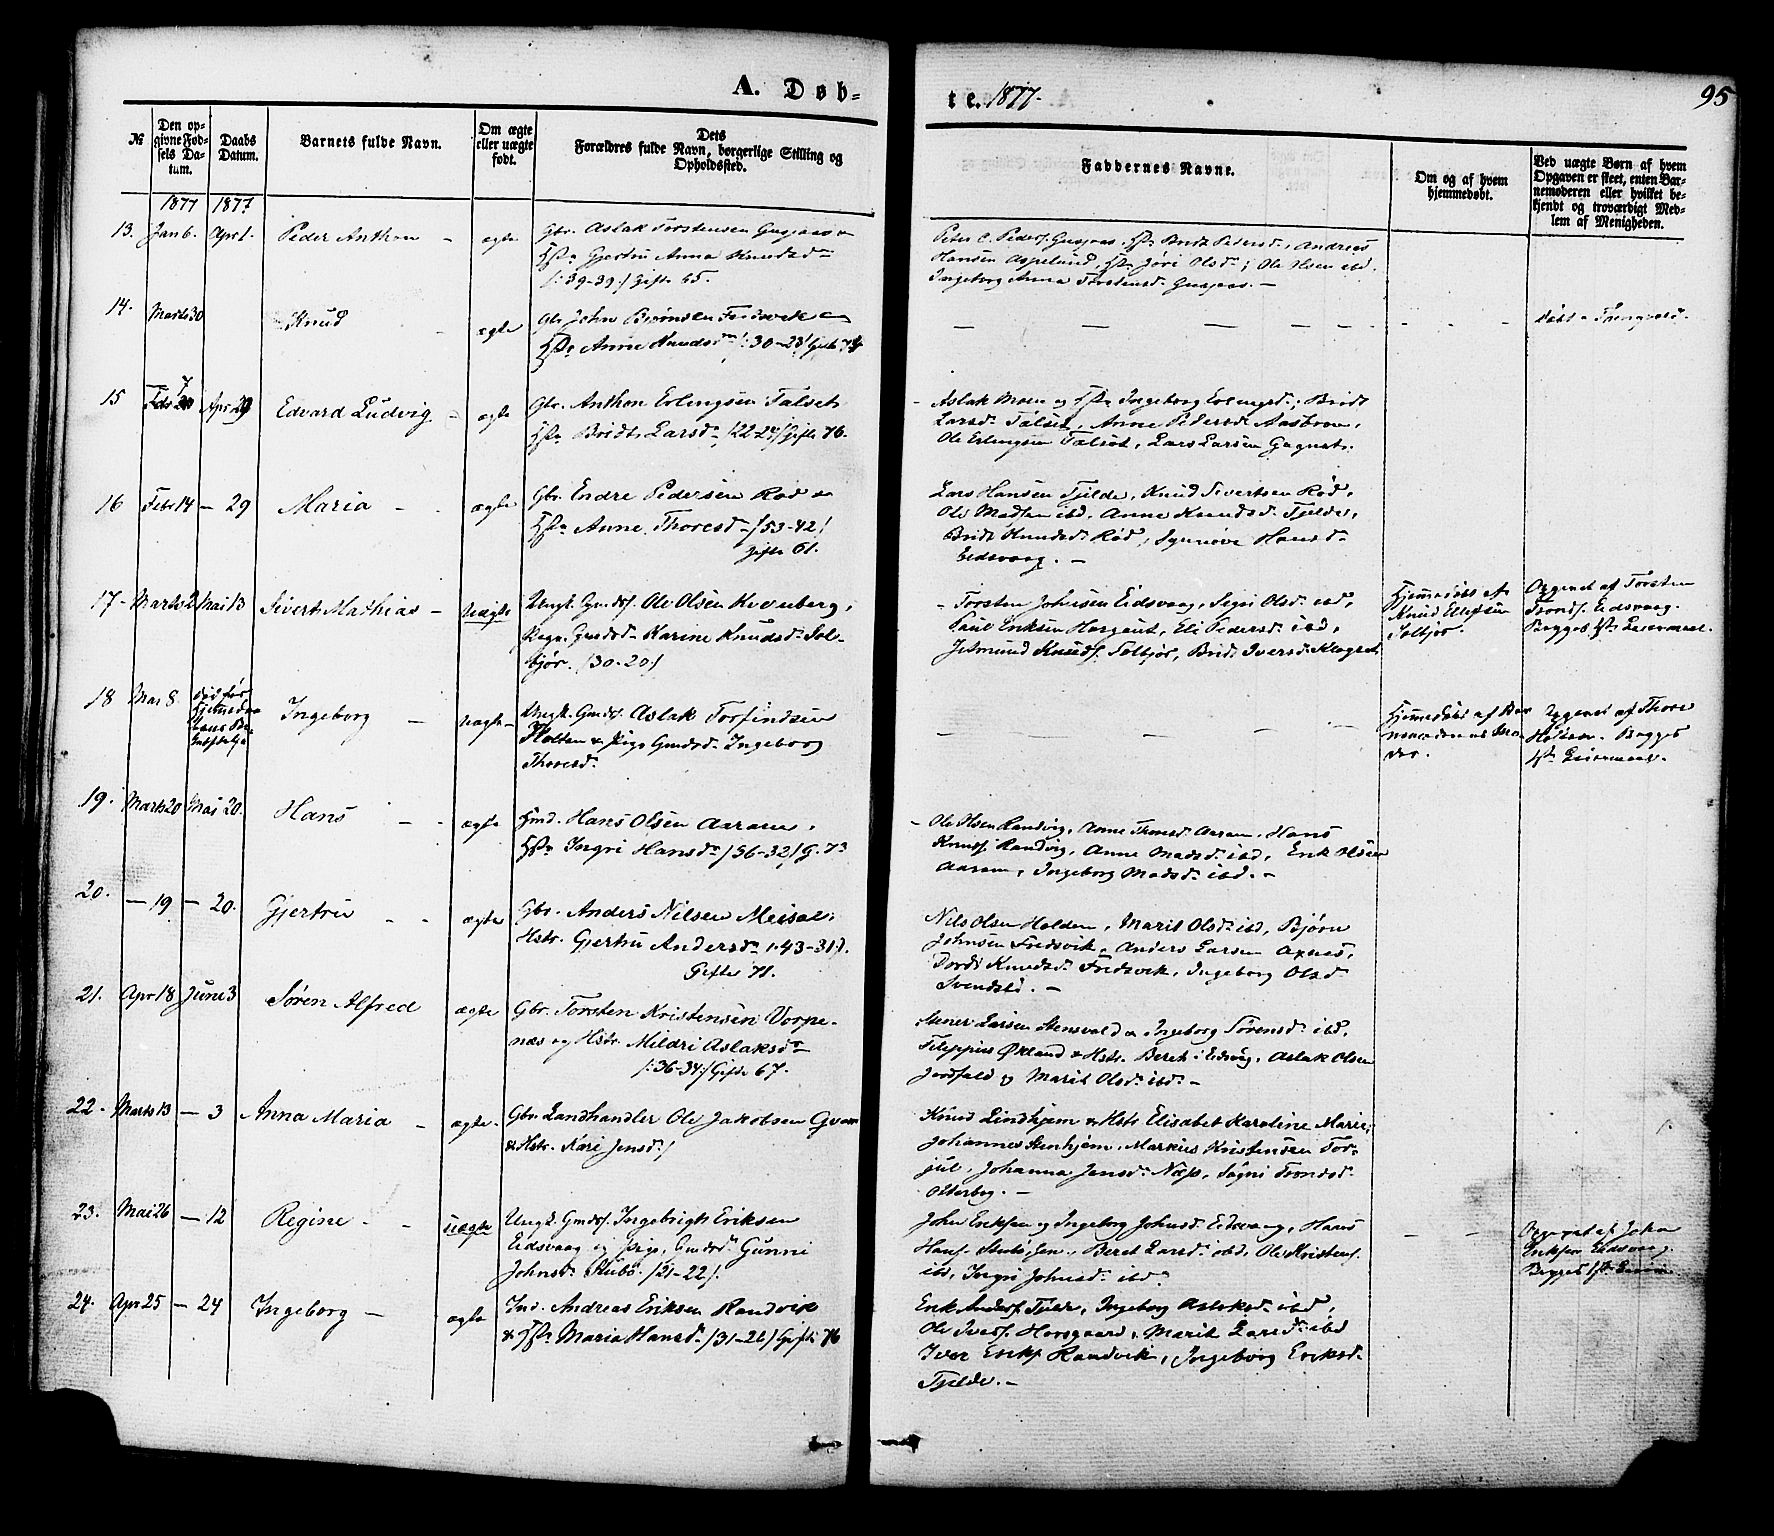 A. Døb-
te. 1877.
95
№
Den op-
givne Fød-
sels Da-
tum.
Daabs
Datum.
Barnets fulde Navn.
Om ægte
eller uægte
født.
Dets
Forældres fulde Navn, borgerlige Stilling og
Opholdssted.
Faddernes Navne.
Om og af hvem
hjemmedøbt.
Ved uægte Børn af hvem
Opgaven er skeet, enten Bar-
nemoderen eller hvilket be-
kjendt og troværdigt Med-
lem af Menigheden.
1877 1877
13. Jan 6. Apr 1. Peder Anthon - ægte
Gbr. Aslak Torstensen Gusjaas &
Hstr Gjertru Anna Knudsdr
/:39-39:/ Gifte 65.
Peter C. Peders. Gusjaas, Hstr Brit Pedersd., Andreas
Hansen Aspelund, Hstr Jøri Olsdr; Ole Olsen ibd.
Ingeborg Anna Torstensd. Gusjaas. -
14. Marts 30 Knud - ægte
Gbr John Bjørnsen Fredsvik &
Hstr Anne Knudsdr /:30-28/ Gift 74
døbt a Tringvold.
15 Febr 7 Apr 29 Edvard Ludvig - ægte
Gbr. Anthon Erlingsen Talset
Hstr Bridt Larsdr /22-24/ Gifte 76.
- Aslak Moen og Hstr Ingeborg Erlingsd.; Bridt
Larsd. Talset, Anne Pedersdr Aasbroe,
Ole Erlingsen Talset, Lars Larsen Gagnat.
16 Febr 14 - 29 Maria - - ægte
Gbr. Endre Pedersen Rød &
Hstr Anne Thoresd - /53-42/
Gifte 61.
Lars Hansen Tjelde, Knud Sivertsen Rød,
Ole Madsen ibd, Anne Knudsd. Tjelde,
Bridt Knudsd Rød, Synnøve Hansd.
Eidsvaag. -
17 - Marts 2 Mai 13 Sivert Mathias - uægte
Ungk. Gmdsf. Ole Olsen Kvenberg,
Pige. Gmdsd. Karine Knudsd. Sol-
bjør. /30-20:/
- Torsten Johnsen Eidsvaag, Segri Olsd. ibd,
Paul Eriksen Horgaut, Eli Pedersd. ibd,
Jetmund Knuds. Solbjør, Brid Iversd. Klogset
Hjemmedøbt af
Knud Ellefsen
Solbjør.
Opgivet af Torsten
Tronds. Eidsvaag.
Begges 1ste Leiermaal.
18 Mar 8. død før
Ingeborg - uægte -
Ungk. Gmdsf. Aslak Torfindsen
Holten & Pige Gmdsd. Ingeborg
Thoresd.
Hjemmedøbt af Bar
nemoderens Mo
der.
Opgivet af Thore
Holten. Begges
1ste Leiermaal.
19. Marts 20 Mai 20. Hans - - ægte
Gmd. Hans Olsen Aaram,
Hstr Ingri Hansdr /36-32/ G. 73
- Ole Olsen Randvig, Anne Thoresd. Aaram, Hans
Knuds. Randvig, Anne Madsd. ibd, Erik Olsen
Aaram, Ingeborg Madsd. ibd. -
20. - 19 - 20. Gjertru - - ægte
Gbr. Anders Nilsen Meisal,
Hstr. Gjertru Andersdr /:43-31/.
Gifte 71.
Nils Olsen Holden, Marit Olsd. ibd, Bjørn
Johnsen Fredsvik, Anders Larsen Axnes,
Dordi Knudsd. Fredsvik, Ingeborg Olsd
Svendsli. -
21. Apr 18 Juni 3 Søren Alfred ægte
Gbr. Torsten Kristensen Vorpe-
næs og Hstr. Mildri Aslaksdr
/:36-34/ Gifte 67.
Stener Larsen Stensvold & Ingeborg Sørensd. ibd,
Filippus Økland & Hstr. Beret i Eidsvåg, Aslak Olsen
Jordfald og Marit Olsd. ibd. -
22. Marts 13 - 3 Anna Maria - ægte -
Gbr Landhandler Ole Jakobsen Gvam
& Hstr. Kari Jensd. /
Knud Lindhjem & Hstr Elisabet Karoline Marie,
Johannes Stenhjem, Markus Kristensen Tor-
jul, Johanna Jensd. Næs, Sigri Trondsd.
Osterbog. -
23. Mai 26 - 12 Regine - - uægte
Ungk. Gmdsf. Ingebrigt Eriksen
Eidsvaag og Pige, Gmdsd. Gunni
Johnsd. Stubø. /21-22/.
John Eriksen og Ingeborg Johnsd. Eidsvaag, Hans
Hans. Stubø, Beret Larsd. ibd, Ole Kristens.
ibd, Ingri Johnsd. ibd.
Opgivet af John
Eriksen Eidsvaag
Begges 1ste
24. Apr 25 - 24 Ingeborg - ægte
Ind. Andreas Eriksen Randvik
& Hstr Maria Hansd. /31-26/ Gifte 76
Erik Anders. Tjelde, Ingeborg Aslaksd. ibd,
Ole Ivers. Horsgaard, Marit Larsd. ibd
Iver Eriks. Randvik, Ingeborg Eriksd.
Tjelde. -